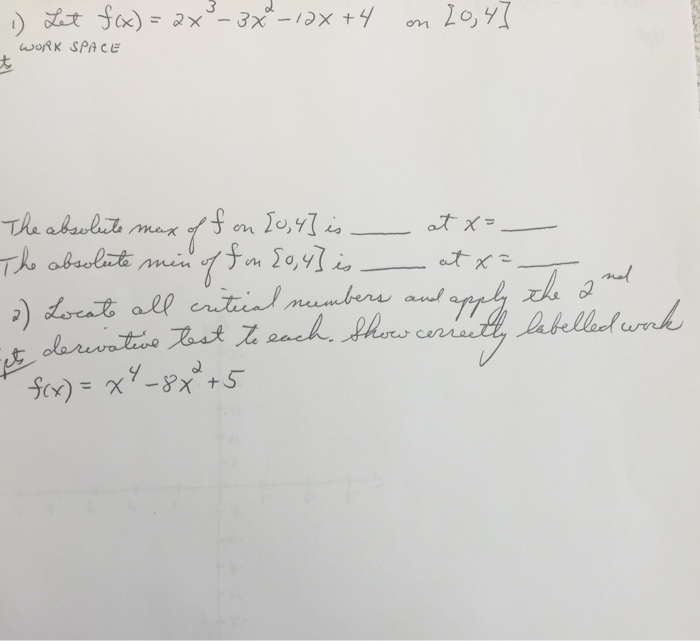 1) Let f(x) = 2x³ - 3x² - 12x + 4 on [0,4]
WORK SPACE
The absolute max of f on [0,4] is ____ at x = ____
The absolute min of f on [0,4] is ____ at x = ____
2) Locate all critical numbers and apply the 2nd
derivative test to each. Show correctly labelled work
f(x) = x⁴ - 8x² + 5